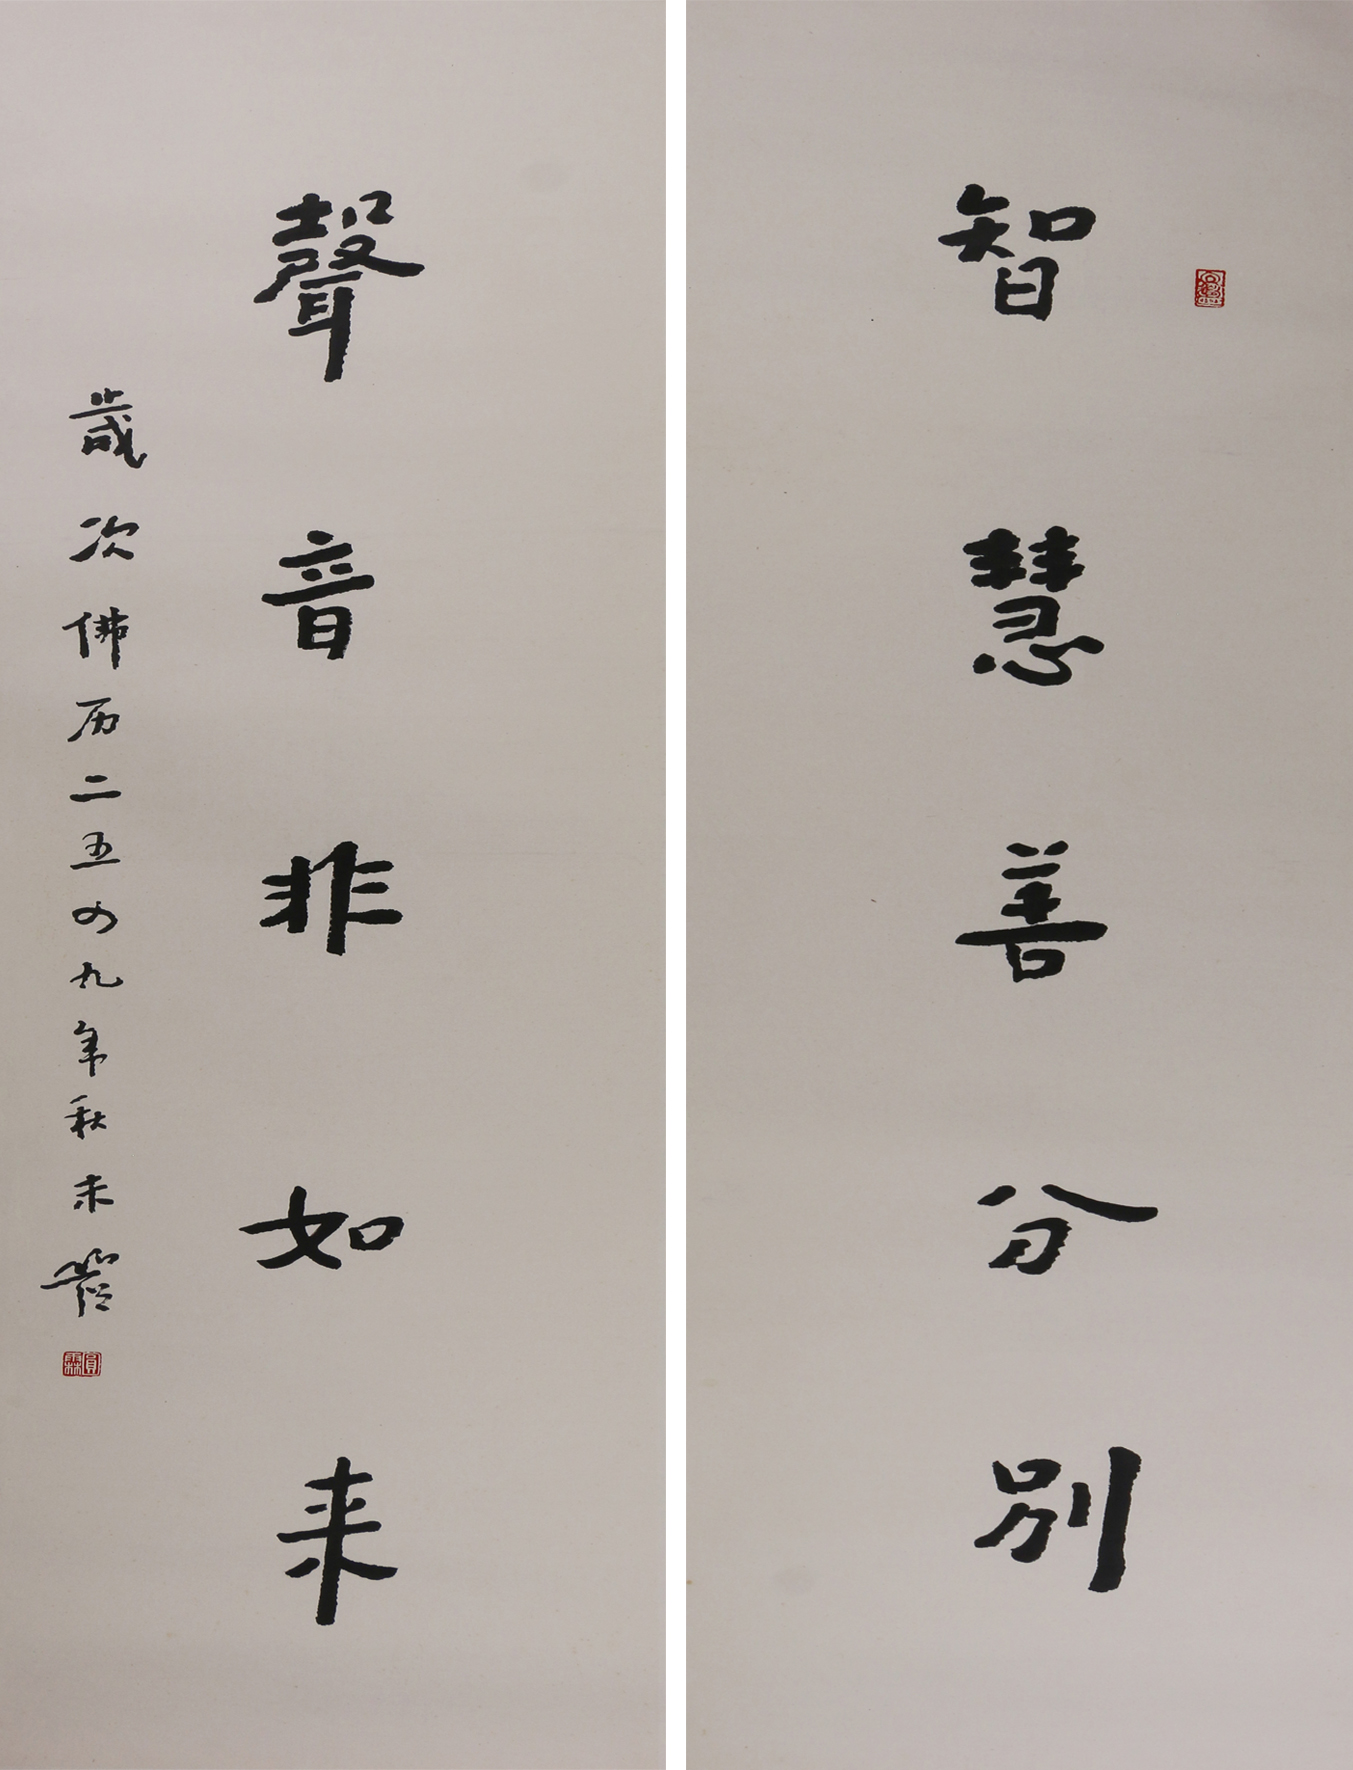 智慧善分別
聲音非如来
歲次佛历二五四九年秋未
圓霖